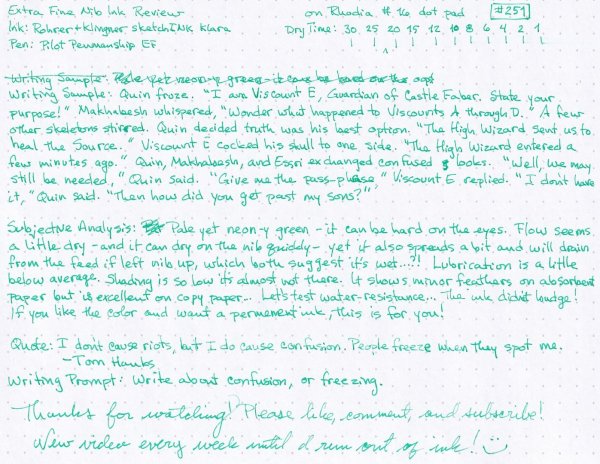 Extra Fine Nib Ink Review on Rhodia #16 dot pad #251
Ink: Rohrer + Klingner sketchINK Klara Dry Time: 30 25 20 15 12 10 8 6 4 2 1
Pen: Pilot Penmanship EF
Writing Sample: Pale yet neon-y green - it can be hard on the
Writing Sample: Quin froze. "I am Viscount E, Guardian of Castle Faber. State your
purpose!" Makhabesh whispered, "Wonder what happened to Viscounts A through D." A few
other skeletons stirred. Quin decided truth was his best option. "The High Wizard sent us to
heal the Source." Viscount E cocked his skull to one side. "The High Wizard entered a
few minutes ago." Quin, Makhabesh, and Essri exchanged confused looks. "Well, we may
still be needed," Quin said. "Give me the pass-phrase," Viscount E replied. "I don't have
it," Quin said. "Then how did you get past my sons?"
Subjective Analysis: Pale yet neon-y green - it can be hard on the eyes. Flow seems
a little dry - and it can dry on the nib quickly - yet it also spreads a bit and will drain
from the feed if left nib up, which both suggest it's wet...?! Lubrication is a little
below average. Shading is so low it's almost not there. It shows minor feathers on absorbent
paper but is excellent on copy paper... Let's test water-resistance... The ink didn't budge!
If you like the color and want a permanent ink, this is for you!
Quote: I don't cause riots, but I do cause confusion. People freeze when they spot me.
-Tom Hanks
Writing Prompt: Write about confusion, or freezing.
Thanks for watching! Please like, comment, and subscribe!
New video every week until I run out of ink!